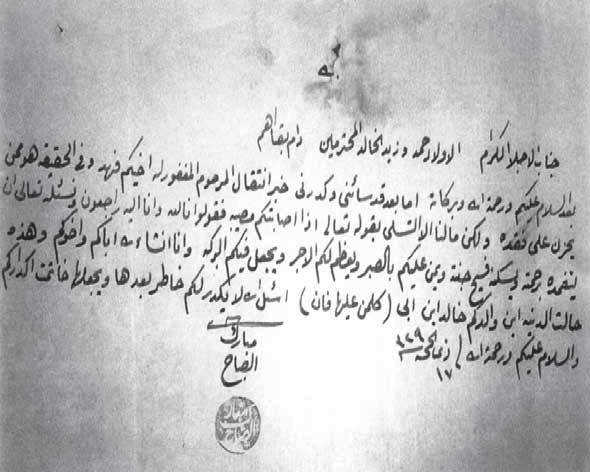 جناب الاجلاء الكرام الاولاد حمد و زيد الخالد المحترمين دام بقاهم
بعد السلام عليكم ورحمة الله وبركاته اما بعد قد سائني وكدرني خبر انتقال المرحوم المغفور له اخيكم فهد وفي الحقيقه هو ممن
يحزن على فقده ولكن مالنا الا التسلي بقوله تعالى اذا اصابتكم مصيبه فقولوا انا لله وانا اليه راجعون ونسئله تعالى ان
يتغمده برحمته ويسكنه فسيح جنته ويمن عليكم بالصبر ويعظم لكم الاجر ويجعل فيكم البركه وانا انشاء الله اباكم واخوكم وهذه
حالت الدنيا ابن والدكم خالد ابن ابي (كلمن عليها فان) اسئل الله لا يكدر لكم خاطر بعدها ويجعلها خاتمت اكداركم
والسلام عليكم ورحمة الله / ذي الحجة
١٧
مبارك
الصباح
مبارك
الصباح